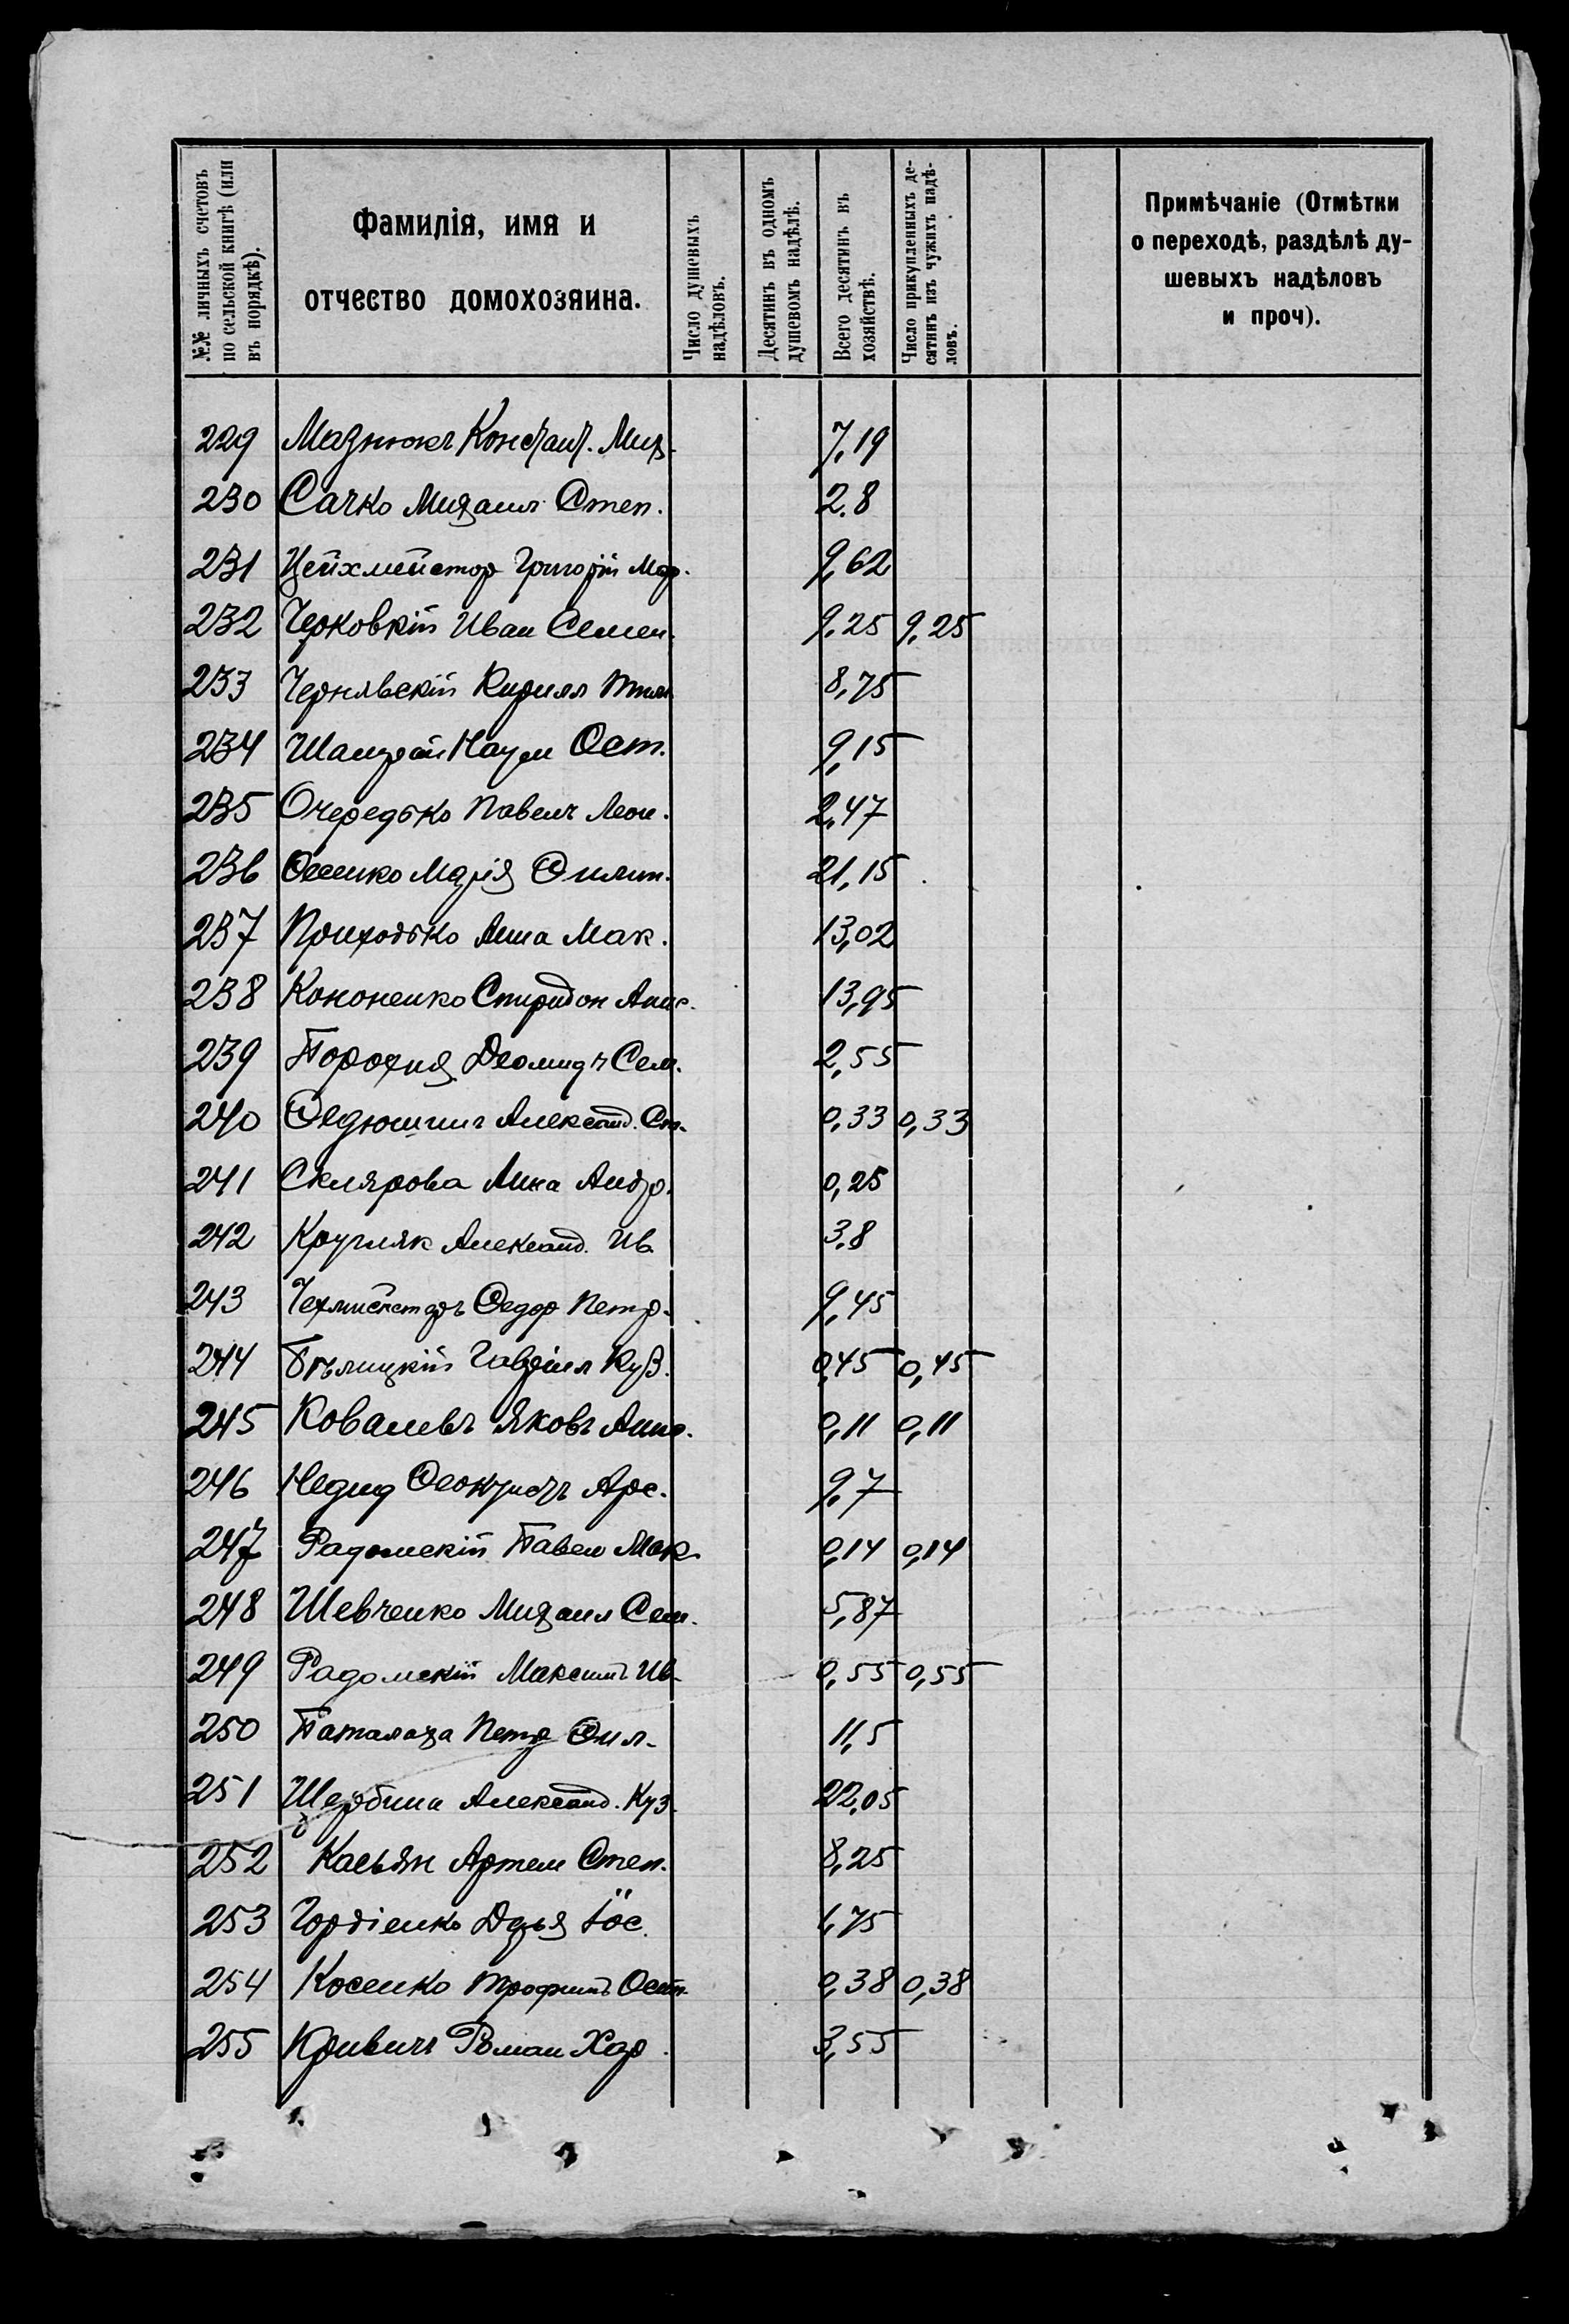 №№ личныхъ счетовъ
по сельской книгѣ (или
въ порядкѣ).
Фамилія, имя и
отчество домохозяина.
Число душевыхъ
надѣловъ.
Десятинъ въ одномъ
душевомъ надѣлѣ.
Всего десятинъ въ
хозяйствѣ.
Число прикупленныхъ де-
сятинъ изъ чужихъ надѣ-
ловъ.
Примѣчаніе (Отмѣтки
о переходѣ, раздѣлѣ ду-
шевыхъ надѣловъ
и проч).
229 Мазнюкъ Констант. Мих. 7,19
230 Сачко Михаил Степ. 2.8
231 Цейхмейстор Григорій Мар. 9,62
232 Черковкій Иван Семен. 9,25 9,25
233 Чернявскій Кирилл 8,75
234 Наум Ост. 9,15
235 Очередько Павелъ Леон. 2,47
236 Марія Филип. 21,15
237 Приходько Анна Мак. 13,02
238 Кононенко Спиридон Анис. 13,95
239 Порохня Деомидъ Сем. 2,55
240 Федюшинъ Александ. Ст. 0,33 0,33
241 Склярова Анна Андр. 0,25
242 Кругляк Александ. Ив. 3.8
243 Федор Петр. 9,45
244 Бѣлицкій Гавріил Куз. 0,45 0,45
245 Ковалевъ Яковъ 0,11 0,11
246 Недид Феоктистъ Арс. 9,7
247 Радомскій Павел Мак. 0,14 0,14
248 Шевченко Михаил Сем. 5,87
249 Радомскій Максимъ Ив. 0,55 0,55
250 Паталаха Петр Фил. 11,5
251 Щербина Александ. Куз. 22,05
252 Касьян Артем Степ. 8,25
253 Гордіенко Дарья Іос. 1,75
254 Косенко Трофимъ Остп. 0,38 0,38
255 Кривичъ Роман Хар. 3,55